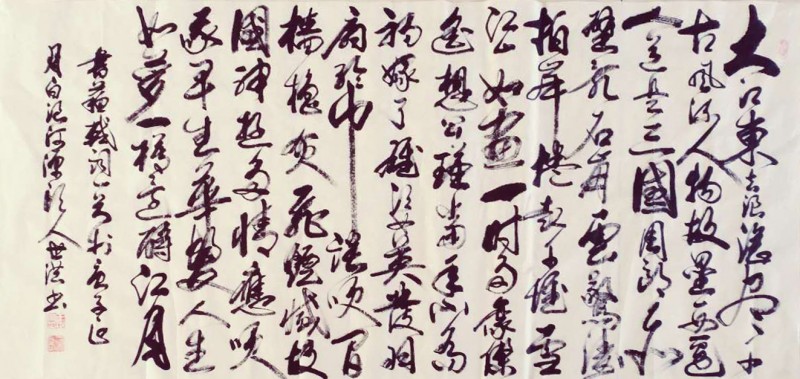 大江東去浪淘盡千
古風流人物故壘西邊
人道是三國周郎赤
壁亂石崩雲驚濤
拍岸捲起千堆雪
江如畫一時多豪傑
遙想公瑾當年小喬
初嫁了雄姿英發羽
扇綸巾談笑間
檣櫓灰飛煙滅故
國神遊多情應笑
我早生華髮人生
如夢一樽還酹江月
書蘇軾詞一首於
月白河人世書